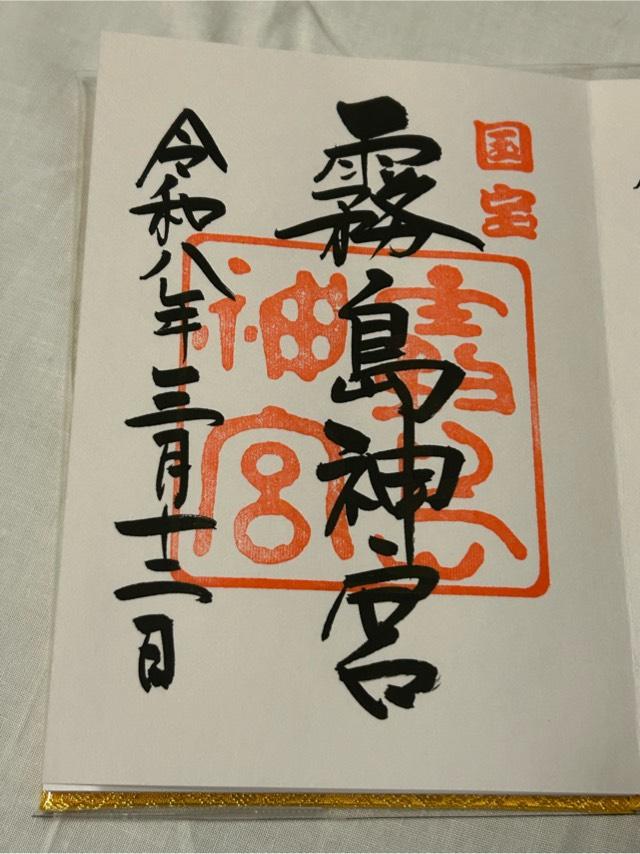 国宝
霧島神宮
霧島神宮
令和八年三月十二日